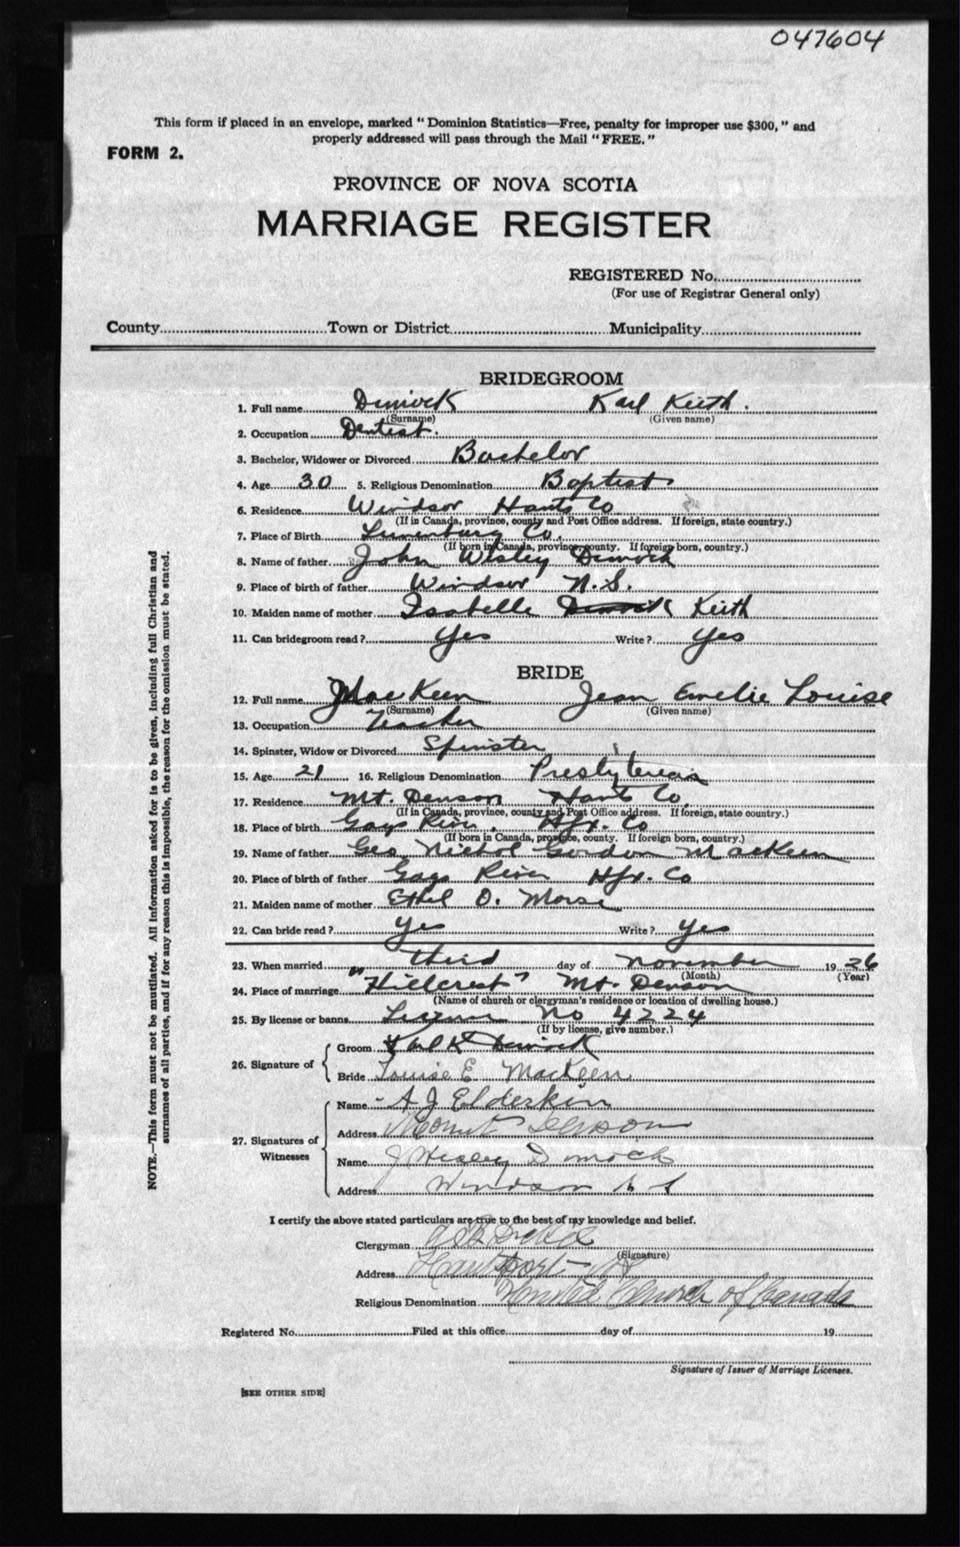 047604
This form if placed in an envelope, marked "Dominion Statistics—Free, penalty for improper use $300," and
properly addressed will pass through the Mail "FREE."
FORM 2.
PROVINCE OF NOVA SCOTIA
MARRIAGE REGISTER
REGISTERED No.
(For use of Registrar General only)
County Town or District Municipality
NOTE.—This form must not be mutilated. All information asked for is to be given, including full Christian and
surnames of all parties, and if for any reason this is impossible, the reason for the omission must be stated.
BRIDEGROOM
1. Full name Dimock Karl Keith.
(Surname) (Given name)
2. Occupation Dentist.
3. Bachelor, Widower or Divorced Bachelor
4. Age 30 5. Religious Denomination Baptist
6. Residence Windsor Hants Co
(If in Canada, province, county and Post Office address. If foreign, state country.)
7. Place of Birth Lunenburg Co.
(If born in Canada, province, county. If foreign born, country.)
8. Name of father John Wesley Dimock
9. Place of birth of father Windsor N.S.
10. Maiden name of mother Isabelle Dimock Keith
11. Can bridegroom read? Yes Write? Yes
BRIDE
12. Full name MacKeen Jean Emelie Louise
(Surname) (Given name)
13. Occupation Teacher
14. Spinster, Widow or Divorced Spinster
15. Age 21 16. Religious Denomination Presbyterian
17. Residence Mt. Denson Hants Co.
(If in Canada, province, county and Post Office address. If foreign, state country.)
18. Place of birth Gays River, Hfx. Co
(If born in Canada, province, county. If foreign born, country.)
19. Name of father Geo. Nichol Gordon MacKeen
20. Place of birth of father Gays River Hfx. Co
21. Maiden name of mother Ethel O. Morse
22. Can bride read? Yes Write? Yes
23. When married third day of November 1936
(Month) (Year)
24. Place of marriage "Hillcrest" Mt. Denson
(Name of church or clergyman's residence or location of dwelling house.)
25. By license or banns License No 4224
(If by license, give number.)
26. Signature of
Groom Karl K Dimock
Bride Louise E MacKeen
27. Signatures of Witnesses
Name A J Elderkin
Address Mount Denson
Name J Wesley Dimock
Address Windsor N S
I certify the above stated particulars are true to the best of my knowledge and belief.
Clergyman
(Signature)
Address Hantsport NS
Religious Denomination United Church of Canada
Registered No. Filed at this office day of 19
Signature of Issuer of Marriage Licenses.
[SEE OTHER SIDE]